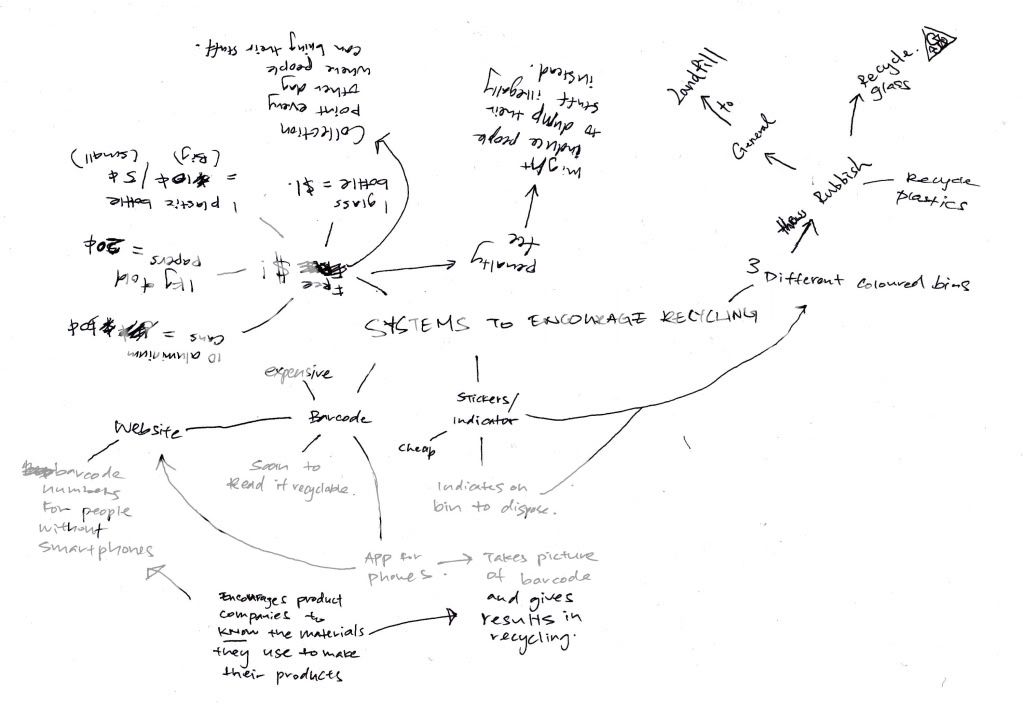 Collection
point every
other day
where people
can bring their stuff.
might
induce people
to dump their
stuff illegally
instead.
penalty
fee
1 glass
bottle = $1.
1 plastic bottle
= 10¢ / 5¢
(Big) (small)
1kg of old
papers = 20¢
10 aluminium
cans =
Free
$!
Landfill
to
General
Recycle
glass
Rubbish
Recycle
plastics
3 Different coloured bins
SYSTEMS TO ENCOURAGE RECYCLING
expensive
Barcode
Website
Scan to
Read if recyclable.
barcode
numbers
For people
without
Smartphones
Stickers/
Indicator
cheap
Indicates on
bin to dispose.
App for
phones.
Takes picture
of barcode
and gives
results in
recycling.
Encourages product
companies to
know the materials
they use to make
their products